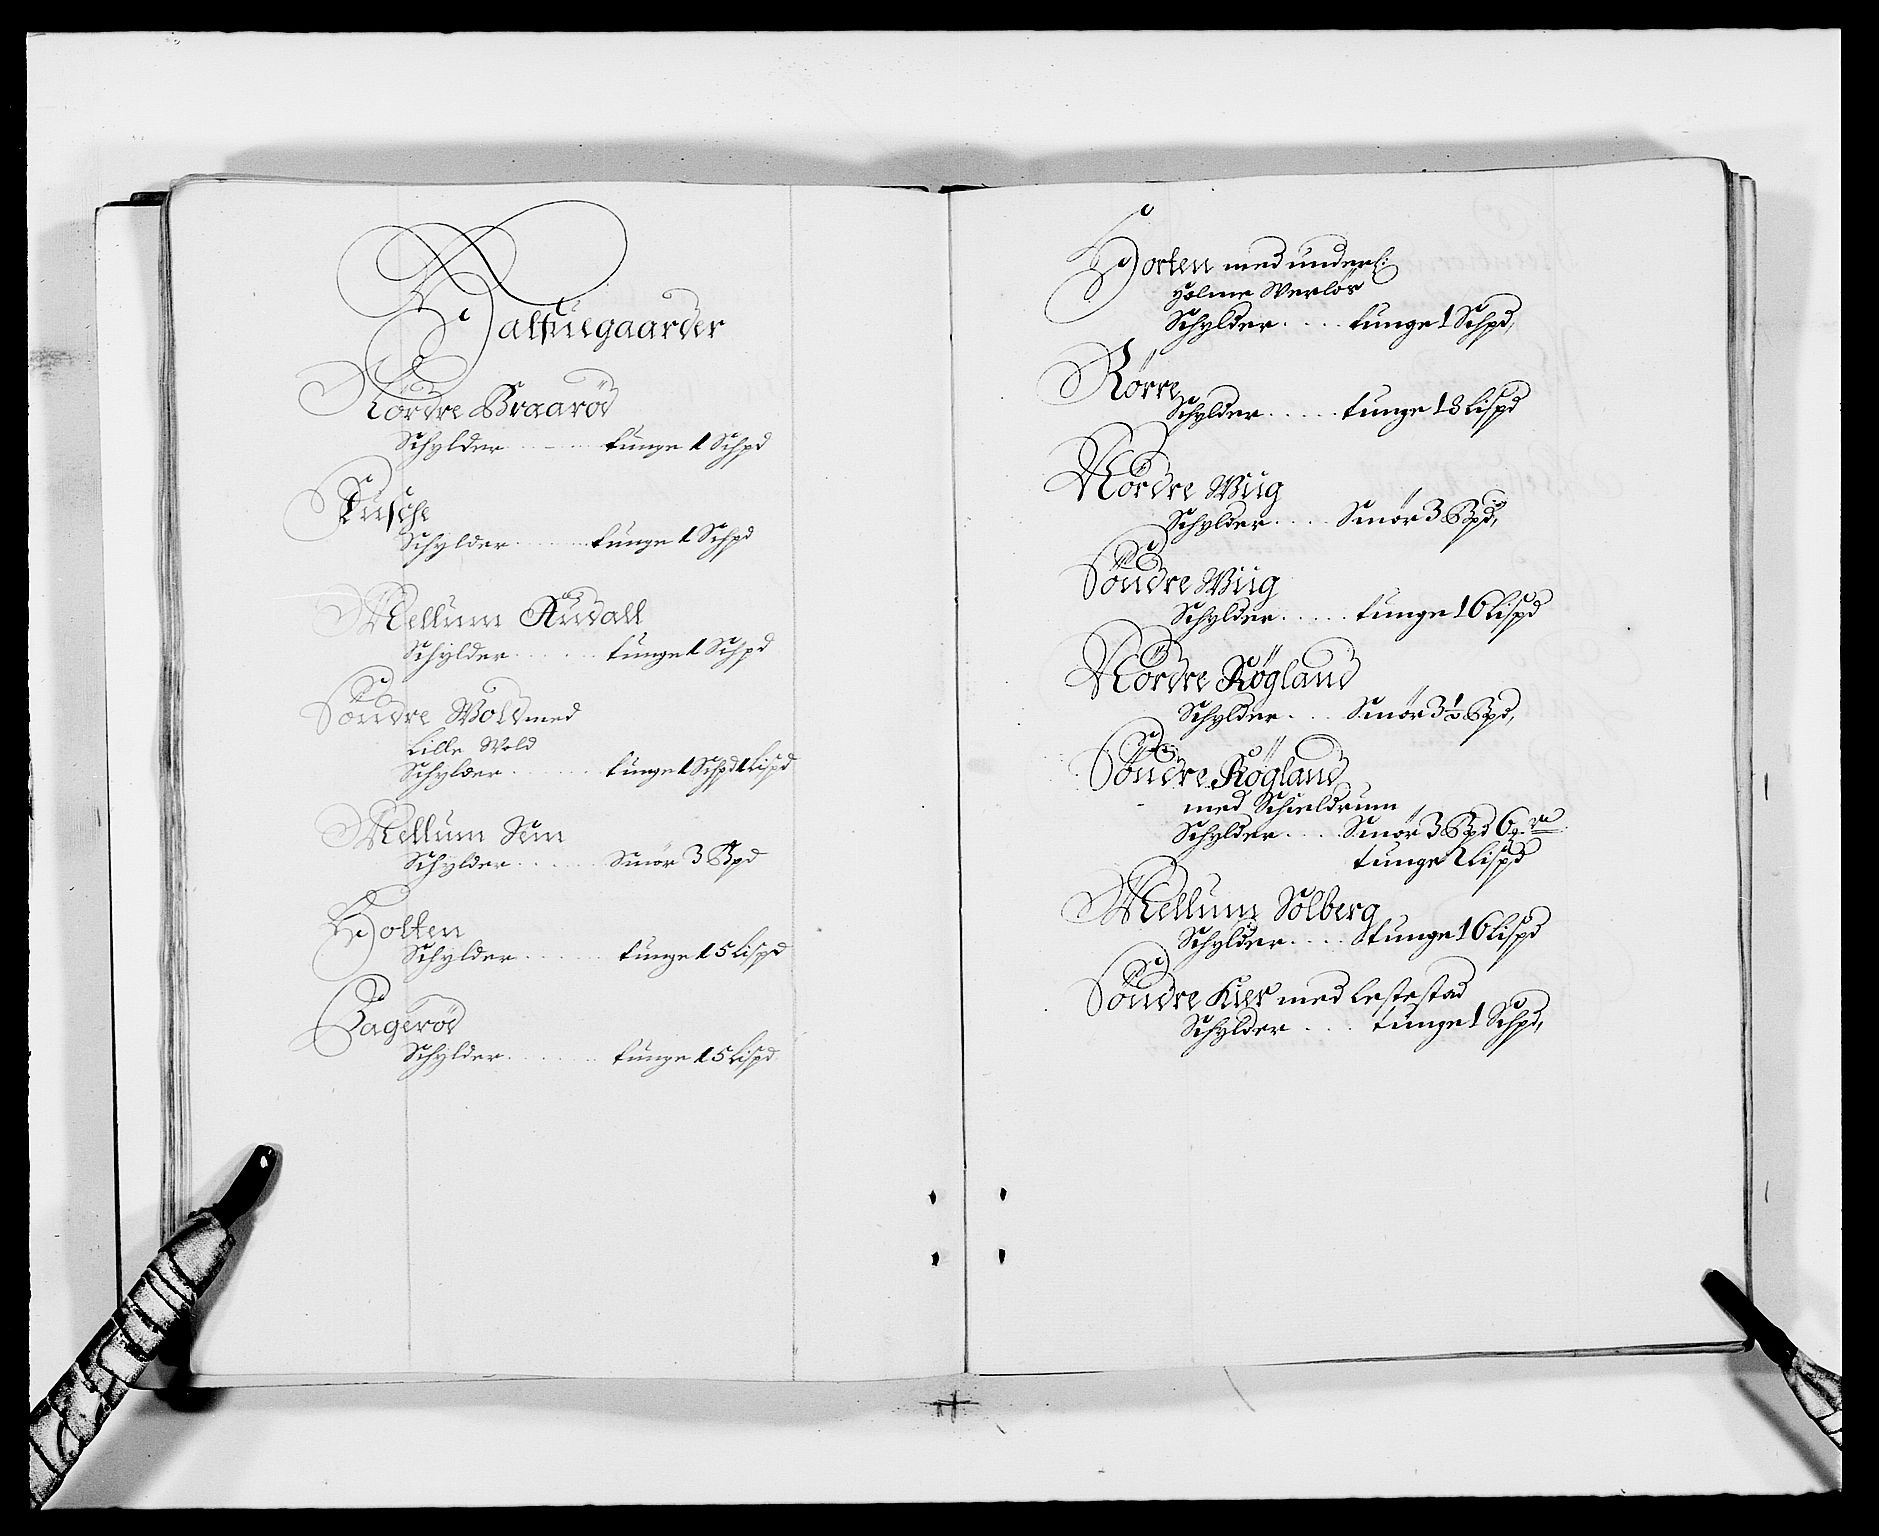 Halfuegaarder
Nordre Braarød
Schylder tunge 1 Schpd
Rusche
Schylder tunge 1 Schpd
Mellum Audall
Schylder tunge 1 Schpd
Søndre Wold med
Lille Wold
Schylder tunge 1 Schpd 1 Lispd
Mellum Sem
Schylder Smör 3 Bpd
Holten
Schylder tunge 15 Lispd
Bagerød
Schylder tunge 15 Lispd
Horten med underl:
Holme Werlös
Schylder tunge 1 Schpd,
Rörre
Schylder tunge 18 Lispd
Nördre Wiig
Schylder Smör 3 Bpd,
Söndre Wiig
Schylder tunge 16 Lispd
Nördre Røgland
Schylder Smör 3½ Bpd,
Söndre Røgland
med Schieldrum
Schylder Smör 3 Bpd 6 
tunge 2 Lispd
Mellum Solberg
Schylder tunge 16 Lispd
Söndre Kier med Lestestad
Schylder tunge 1 Schpd,